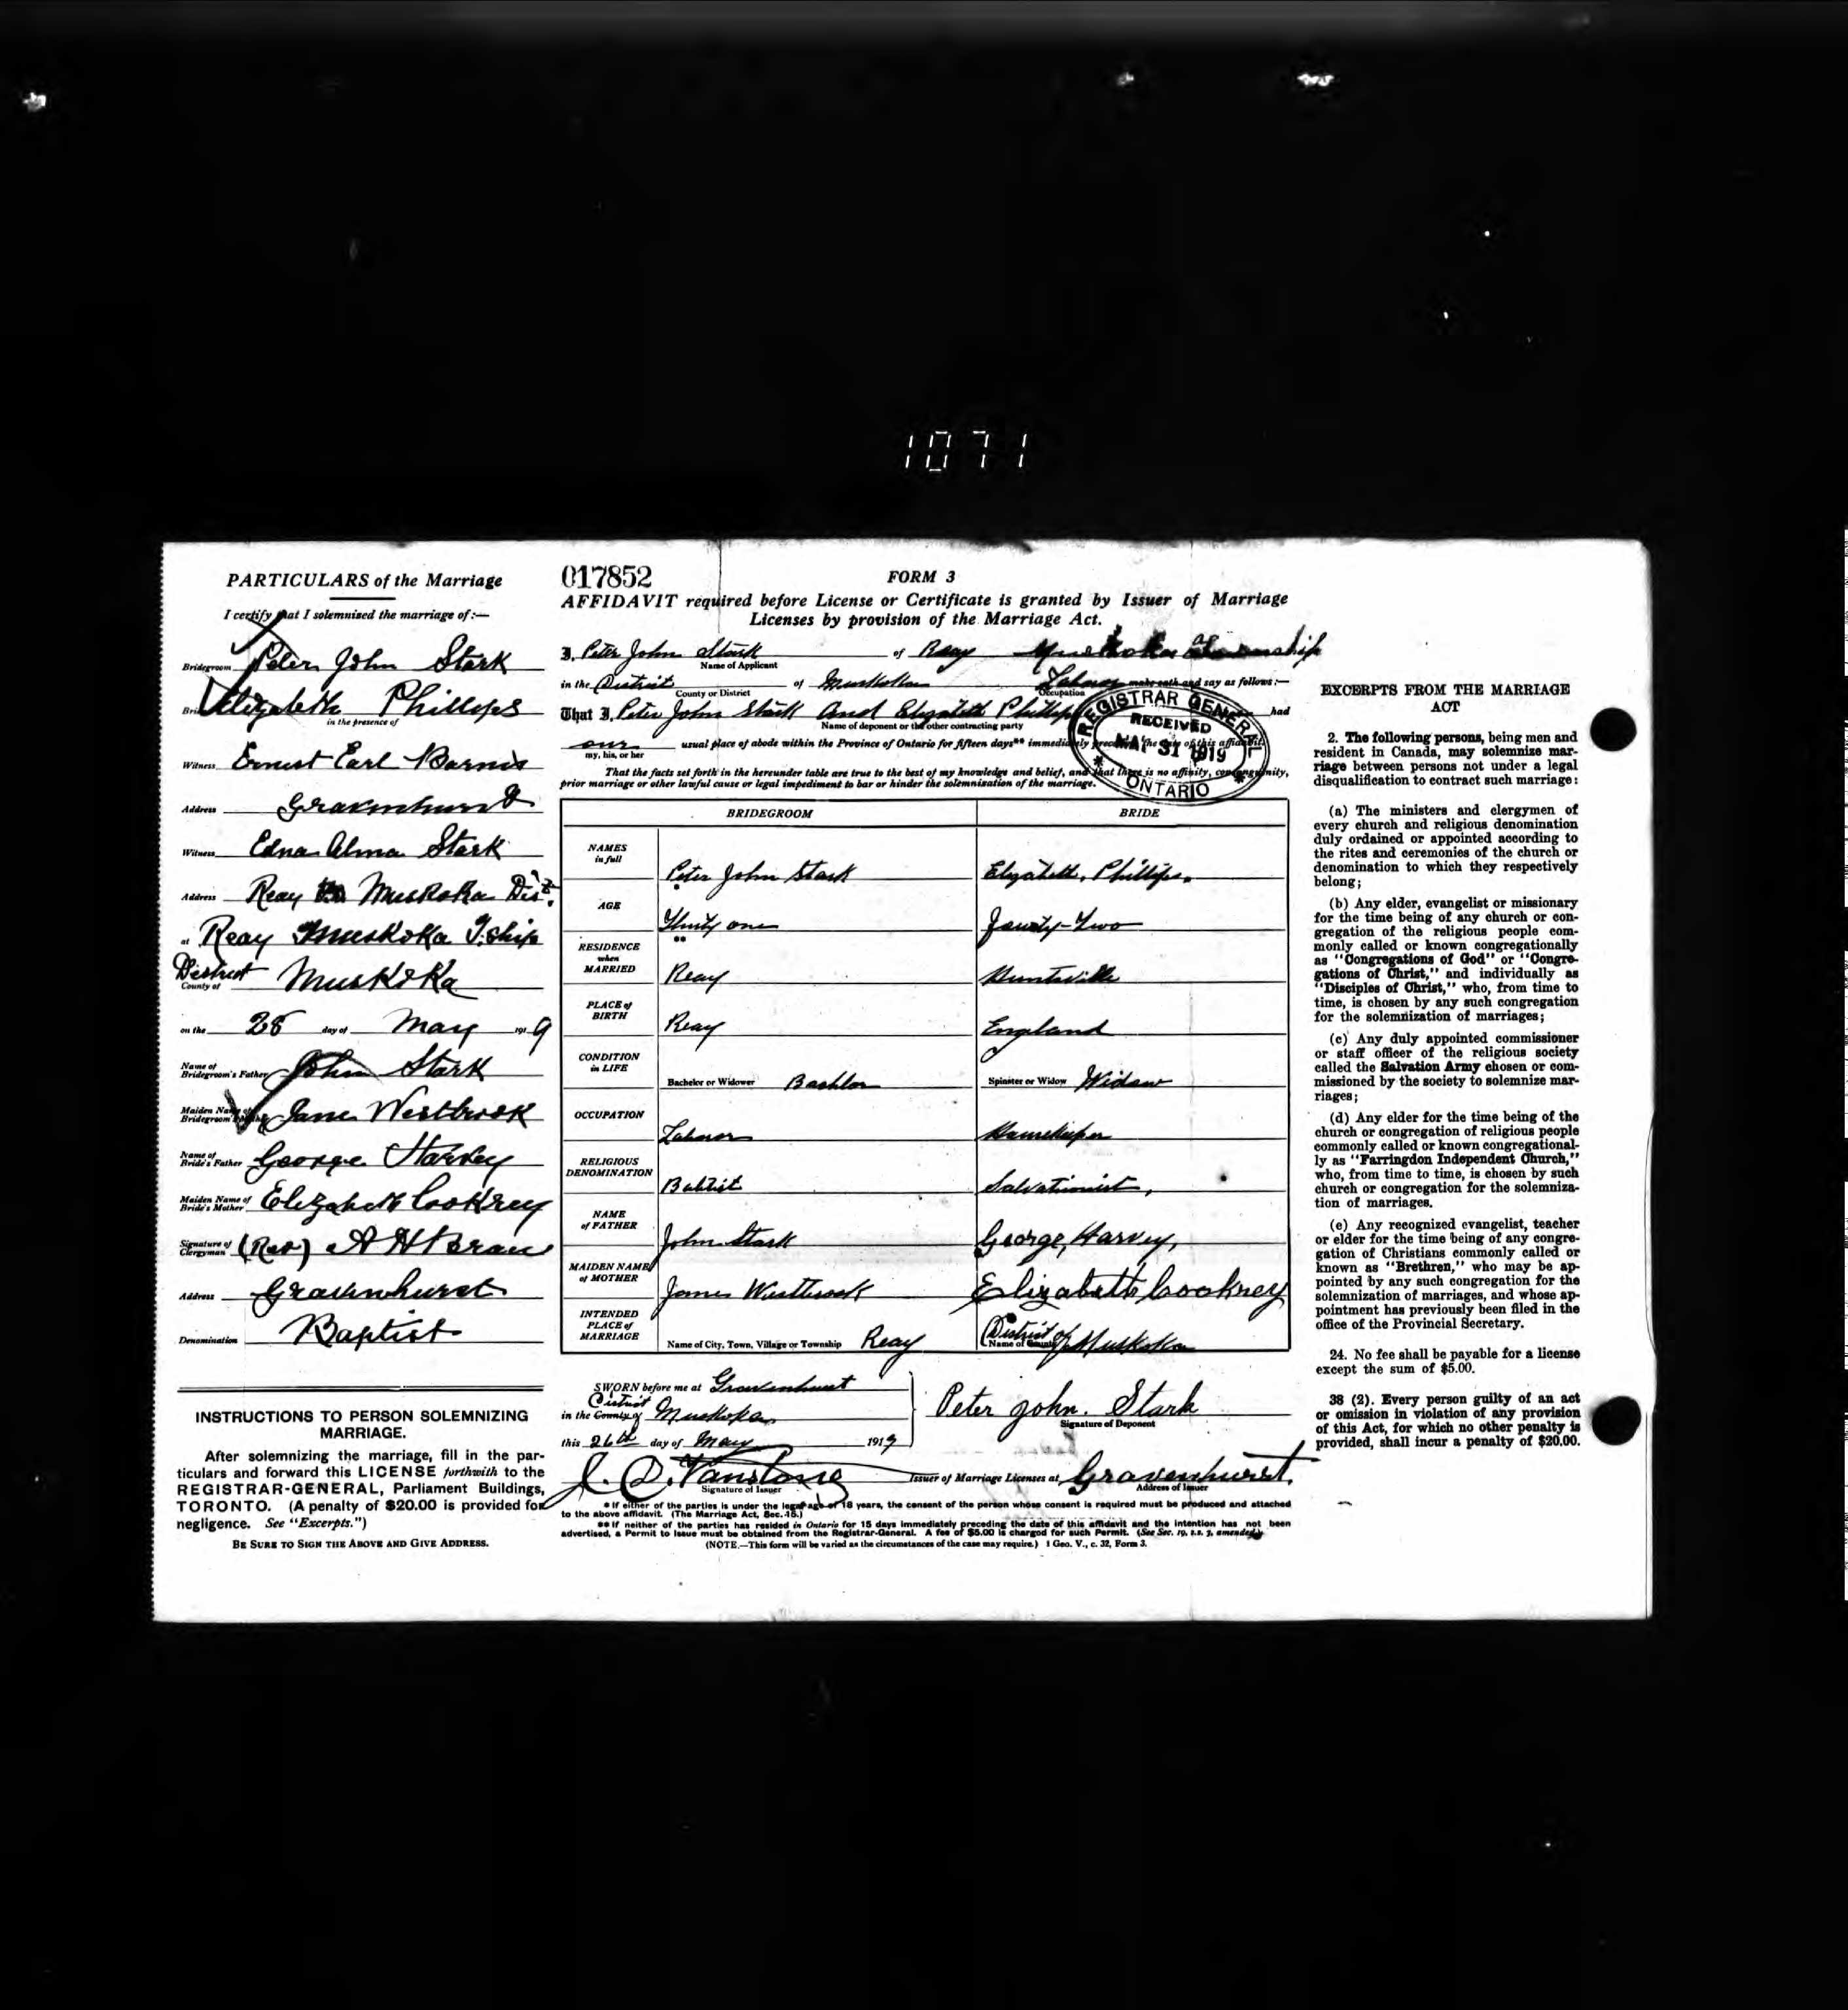 1071
PARTICULARS of the Marriage
I certify that I solemnized the marriage of:—
Bridegroom Peter John Stark
Bride Elizabeth Phillips
in the presence of
Witness Ernest Earl Barnes
Address Gravenhurst
Witness Edna Alma Stark
Address Reay Muskoka Dist.
at Reay Muskoka T.ship
District
County of Muskoka
on the 28 day of May 1919
Name of Bridegroom's Father John Stark
Maiden Name of Bridegroom's Mother Jane Westbrook
Name of Bride's Father George Harvey
Maiden Name of Bride's Mother Elizabeth Cookney
Signature of Clergyman (Rev) A H
Address Gravenhurst
Denomination Baptist
INSTRUCTIONS TO PERSON SOLEMNIZING
MARRIAGE.
After solemnizing the marriage, fill in the par-
ticulars and forward this LICENSE forthwith to the
REGISTRAR-GENERAL, Parliament Buildings,
TORONTO. (A penalty of $20.00 is provided for
negligence. See "Excerpts.")
BE SURE TO SIGN THE ABOVE AND GIVE ADDRESS.
017852
FORM 3
AFFIDAVIT required before License or Certificate is granted by Issuer of Marriage
Licenses by provision of the Marriage Act.
I, Peter John Stark of Reay Muskoka Township
Name of Applicant
in the District of Muskoka Labour make oath and say as follows:—
County or District Occupation
That I, Peter John Stark And Elizabeth Phillips had
Name of deponent or the other contracting party
our usual place of abode within the Province of Ontario for fifteen days** immediately preceding the date of this affidavit.
my, his, or her
That the facts set forth in the hereunder table are true to the best of my knowledge and belief, and that there is no affinity, consanguinity,
prior marriage or other lawful cause or legal impediment to bar or hinder the solemnization of the marriage.
REGISTRAR GENERAL
RECEIVED
MAY 31 1919
ONTARIO
BRIDEGROOM BRIDE
NAMES in full Peter John Stark Elizabeth, Phillips.
AGE Thirty one Fourty-Two
RESIDENCE when MARRIED Reay Huntsville
PLACE of BIRTH Reay England
CONDITION in LIFE Bachelor or Widower Bachlor Spinster or Widow Widow
OCCUPATION Labour Housekeeper
RELIGIOUS DENOMINATION Babtist Salvationist,
NAME of FATHER John Stark George, Harvey,
MAIDEN NAME of MOTHER Jane Westbrook Elizabeth Cookney
INTENDED PLACE of MARRIAGE Name of City, Town, Village or Township Reay Name of County District of Muskoka
SWORN before me at Gravenhurst
District
in the County of Muskoka
this 26th day of May 1919
Peter John. Stark
Signature of Deponent
J. D. Vanstone Issuer of Marriage Licenses at Gravenhurst.
Signature of Issuer Address of Issuer
* If either of the parties is under the legal age of 18 years, the consent of the person whose consent is required must be produced and attached
to the above affidavit. (The Marriage Act, Sec. 15.)
** If neither of the parties has resided in Ontario for 15 days immediately preceding the date of this affidavit and the intention has not been
advertised, a Permit to Issue must be obtained from the Registrar-General. A fee of $5.00 is charged for such Permit. (See Sec. 19, s.s. 2, amended)
(NOTE.—This form will be varied as the circumstances of the case may require.) 1 Geo. V., c. 32, Form 3.
EXCERPTS FROM THE MARRIAGE
ACT
2. The following persons, being men and
resident in Canada, may solemnize mar-
riage between persons not under a legal
disqualification to contract such marriage:
(a) The ministers and clergymen of
every church and religious denomination
duly ordained or appointed according to
the rites and ceremonies of the church or
denomination to which they respectively
belong;
(b) Any elder, evangelist or missionary
for the time being of any church or con-
gregation of the religious people com-
monly called or known congregationally
as "Congregations of God" or "Congre-
gations of Christ," and individually as
"Disciples of Christ," who, from time to
time, is chosen by any such congregation
for the solemnization of marriages;
(c) Any duly appointed commissioner
or staff officer of the religious society
called the Salvation Army chosen or com-
missioned by the society to solemnize mar-
riages;
(d) Any elder for the time being of the
church or congregation of religious people
commonly called or known congregational-
ly as "Farringdon Independent Church,"
who, from time to time, is chosen by such
church or congregation for the solemniza-
tion of marriages.
(e) Any recognized evangelist, teacher
or elder for the time being of any congre-
gation of Christians commonly called or
known as "Brethren," who may be ap-
pointed by any such congregation for the
solemnization of marriages, and whose ap-
pointment has previously been filed in the
office of the Provincial Secretary.
24. No fee shall be payable for a license
except the sum of $5.00.
38 (2). Every person guilty of an act
or omission in violation of any provision
of this Act, for which no other penalty is
provided, shall incur a penalty of $20.00.